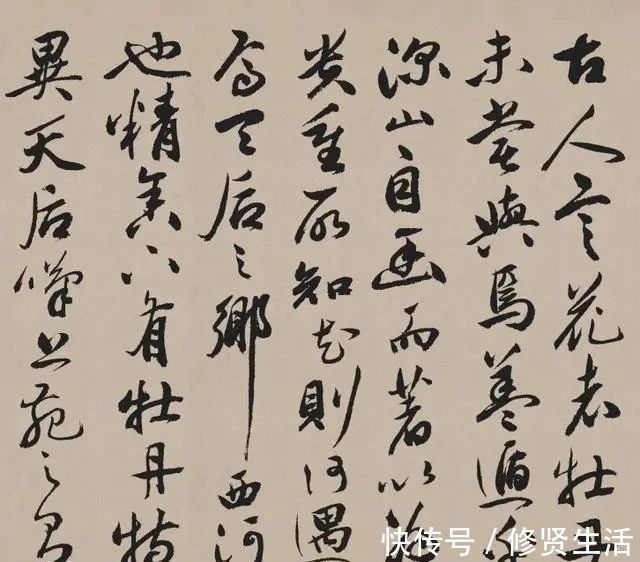 古人言花者牡丹
未嘗與焉蓋遁
深山自幽而著以
貴重所知花則何遇
焉天后之鄉西河
也精舍下有牡丹特
異天后嘆上苑之有
快传号 / 修贤生活